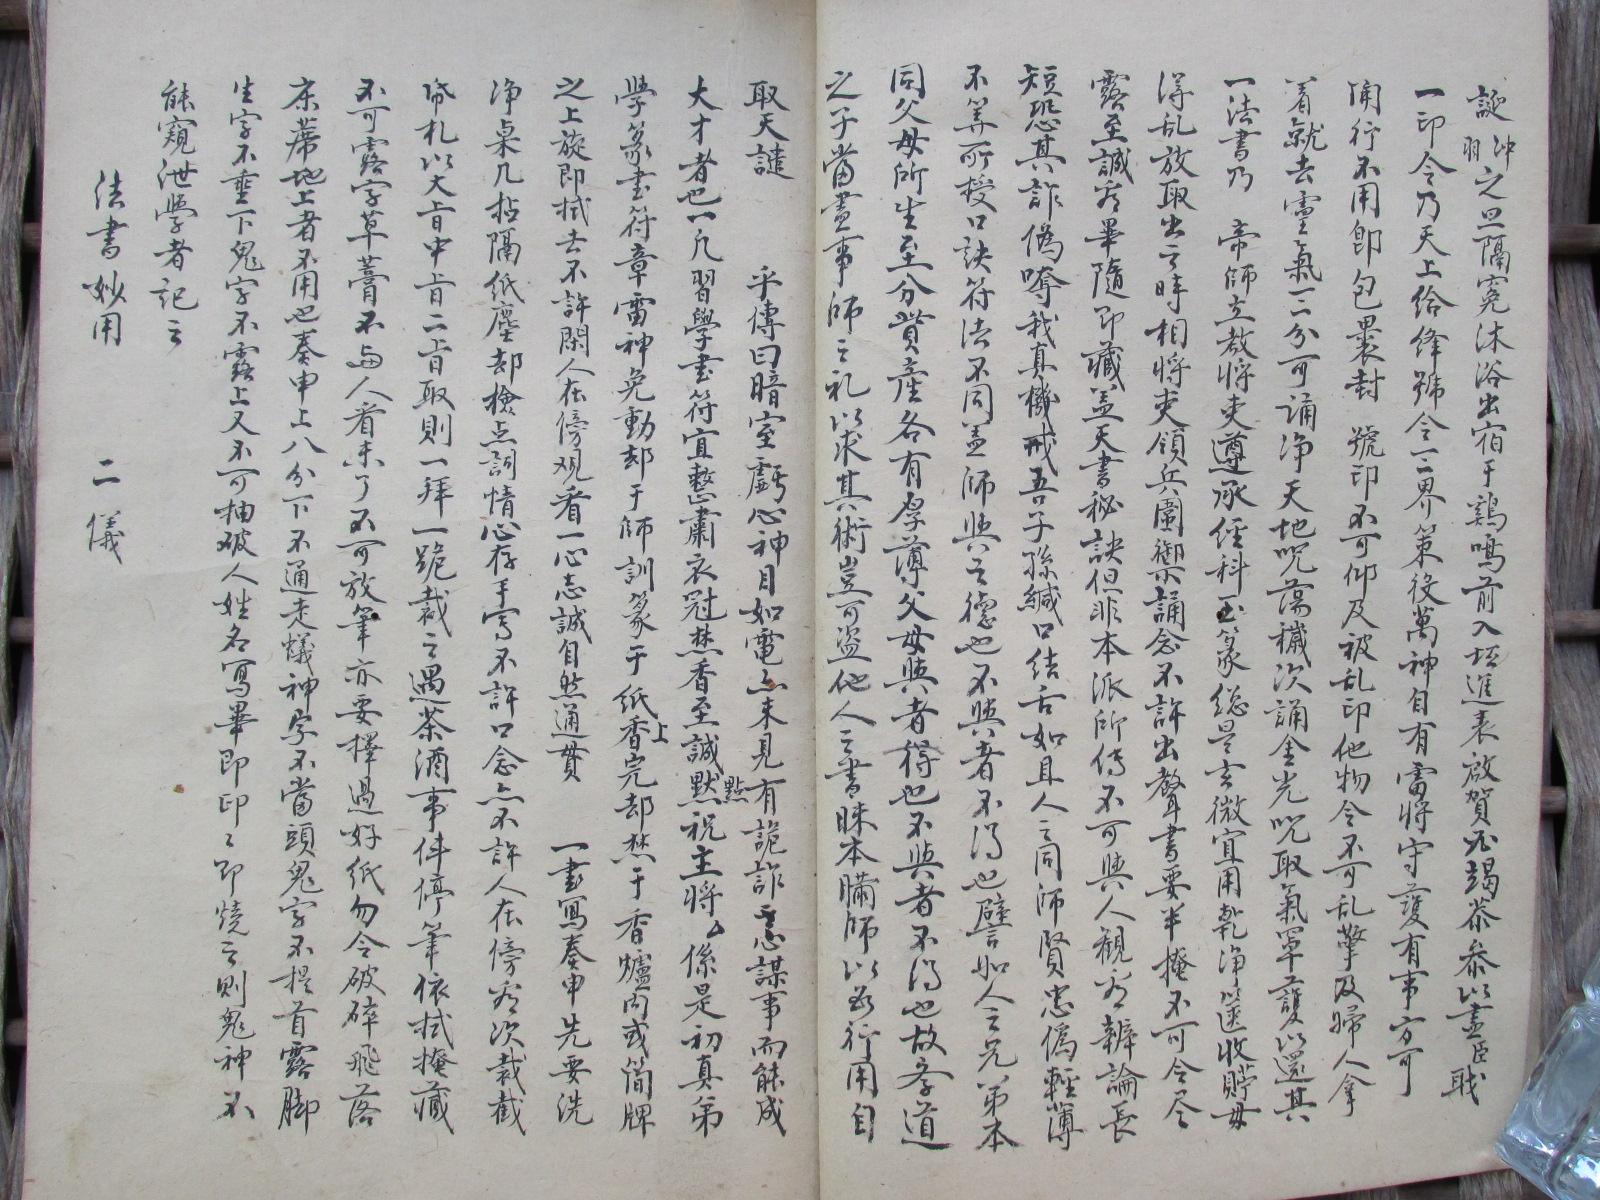 誕冲羽之旦隔宛沐浴出宿于鷄鳴前入坛進表啟賀必竭恭叅以盡臣职
一印令乃天上给鋒號令三界策役萬神自有雷將守護有事方可
開行不用即包裹封 號印不可仰及被乱印他物令不可乱擎及婦人拿
着就去灵氣一二分可誦净天地咒蕩穢次誦金光咒取氣罩護以還其
一法書乃 帝師立教將吏遵承经科玉篆総是玄微宜用乾净篋收貯毋
得乱放取出之時相將吏領兵圍禦誦念不許出聲書要半掩不可令尽
露至誠看畢隨即藏盖天書秘訣但非本派所傳不可與人観看辨論長
短恐其詐偽嘜我真機戒吾子孫緘口结舌如且人之同師賢忠偽輕薄
不等所授口訣符法不同盖師與之德也不與者不得也譬如人之兄弟本
同父母所生至分貲産各有厚薄父母與者得也不與者不得也故孝道
之子當盡事師之礼以求其術豈可盗他人之書昧本瞞師以为行用自
取天譴 乎傳曰暗室虧心神目如電点未見有詭詐悪謀事而能成
大才者也一凡習學書符宜整肅衣冠焚香至誠默點祝主將厶係是初真弟
學篆書符章雷神免動却于師訓篆于紙上香完却焚于香爐内或简牌
之上旋即拭去不許閑人在傍观看一心志誠自然通贯 一書寫奏申先要洗
净桌几拈隔纸塵却檢点詞情心存手寫不許口念点不許人在傍看次裁截
帋札以大旨中旨二旨取則一拜一跪裁之遇茶酒事件停筆依拭掩藏
不可露字草藁不与人看未了不可放筆亦要擇過好纸勿令破碎飛落
床蓆地上者不用也奏申上八分下不通走蟻神字不當頭鬼字不提首露脚
生字不垂下鬼字不露上又不可抽破人姓名寫畢即印々即燒之则鬼神不
能窺泄學者記之
法書妙用 二儀